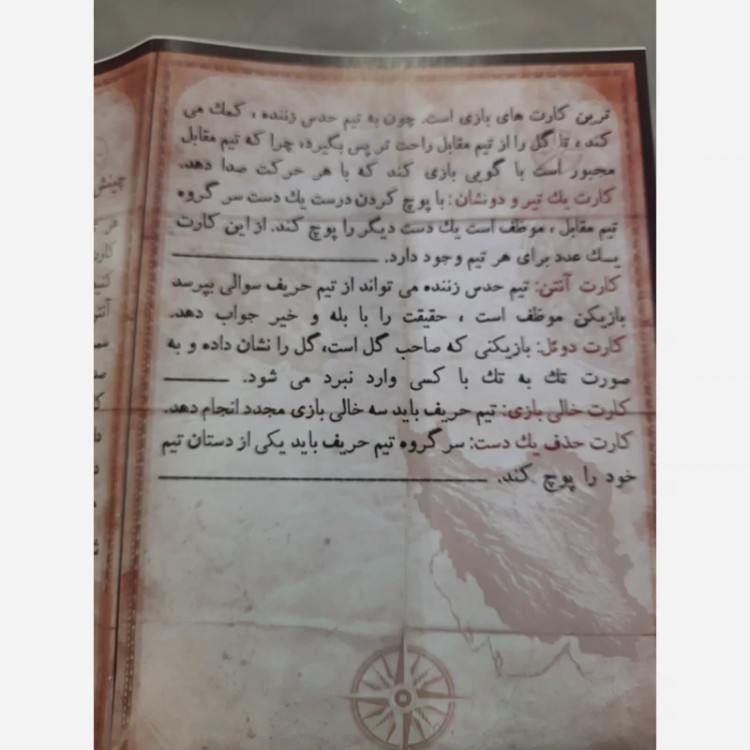 ترین کارت های بازی است. چون به تیم حدس زننده ، کمک می
کند ، تا گل را از تیم مقابل راحت تر پس بگیرد، چرا که تیم مقابل
مجبور است با گویی بازی کند که با هر حرکت صدا دهد.
کارت یك تیر و دونشان: با پوچ کردن درست یك دست سر گروه
تیم مقابل ، موظف است یك دست دیگر را پوچ کند. از این کارت
یسك عدد برای هر تیم وجود دارد.
کارت آنتن: تیم حدس زننده می تواند از تیم حریف سوالی بپرسد
بازیکن موظف است ، حقیقت را با بله و خیر جواب دهد.
کارت دوئل: بازیکنی که صاحب گل است، گل را نشان داده و به
صورت تك به تك با کسی وارد نبرد می شود.
کارت خالی بازی: تیم حریف باید سه خالی بازی مجدد انجام دهد.
کارت حذف یك دست: سر گروه تیم حریف باید یکی از دستان تیم
خود را پوچ کند.
چینش